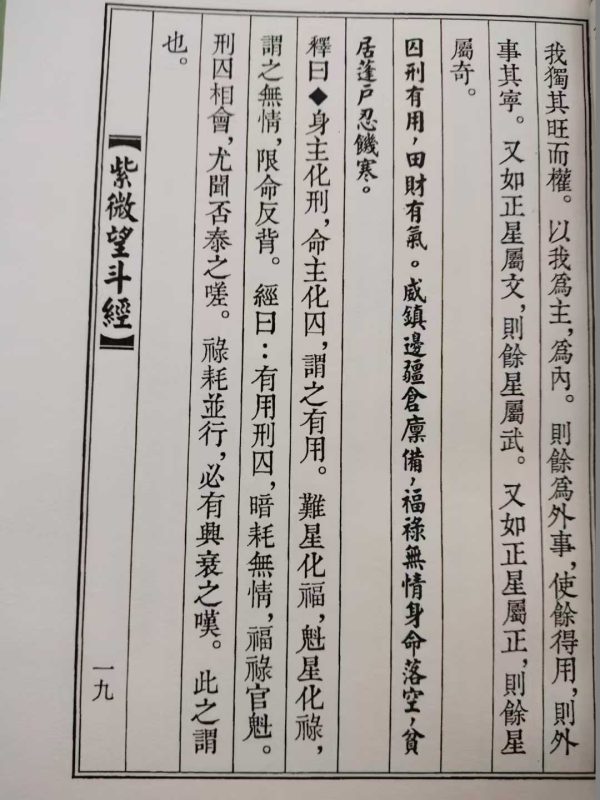 我獨其旺而權。以我為主,為內。則餘為外事,使餘得用,則外
事其寧。又如正星屬文,則餘星屬武。又如正星屬正,則餘星
屬奇。
囚刑有用,田財有氣。威鎮邊疆倉廩備,福祿無情身命落空,貧
居蓬戶忍饑寒。
釋曰◆身主化刑,命主化囚,謂之有用。難星化福,魁星化祿,
謂之無情,限命反背。經曰:有用刑囚,暗耗無情,福祿官魁。
刑囚相會,尤聞否泰之嗟。祿耗並行,必有興衰之嘆。此之謂
也。
【紫微望斗經】
一九